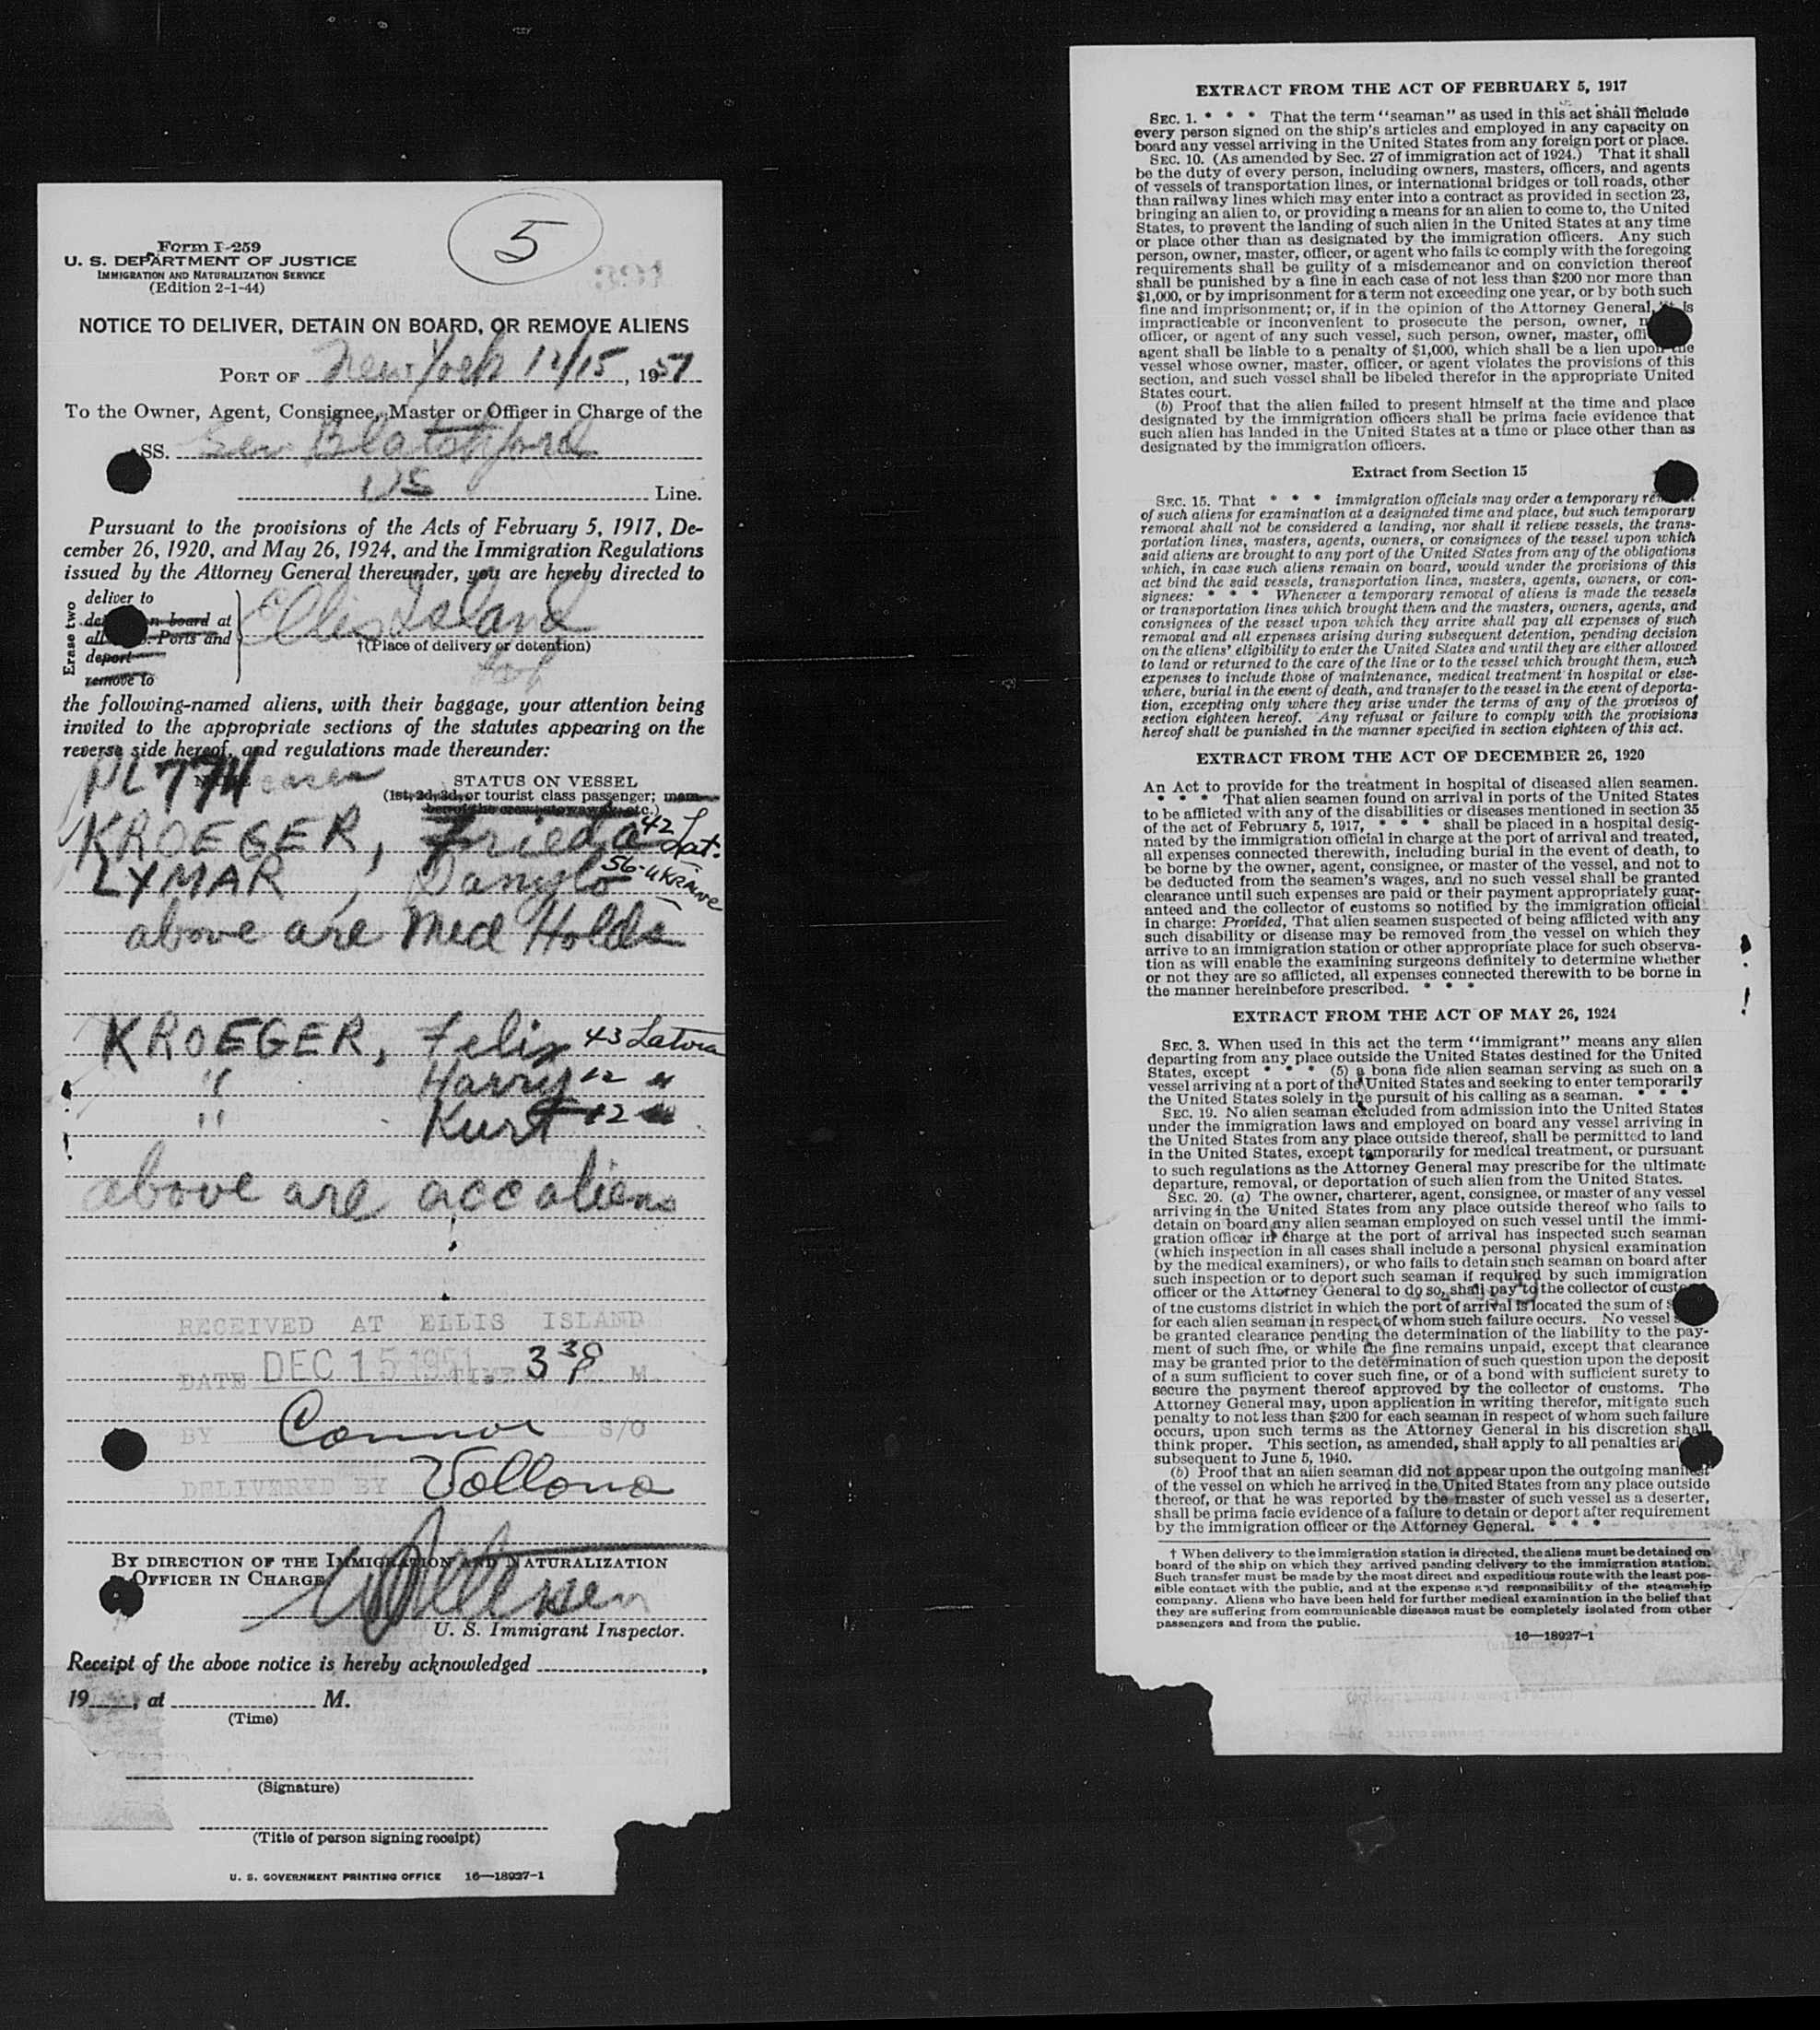 5
Form I-259
U. S. DEPARTMENT OF JUSTICE
IMMIGRATION AND NATURALIZATION SERVICE
(Edition 2-1-44)
NOTICE TO DELIVER, DETAIN ON BOARD, OR REMOVE ALIENS
PORT OF New York 12/15, 1951
To the Owner, Agent, Consignee, Master or Officer in Charge of the
SS. Gen Blatchford
US Line.
Pursuant to the provisions of the Acts of February 5, 1917, De-
cember 26, 1920, and May 26, 1924, and the Immigration Regulations
issued by the Attorney General thereunder, you are hereby directed to
Erase two
deliver to
n board at
all Ports and
deport
remove to
Ellis Island
†(Place of delivery or detention)
the following-named aliens, with their baggage, your attention being
invited to the appropriate sections of the statutes appearing on the
reverse side hereof, and regulations made thereunder:
PL 774 cases
STATUS ON VESSEL
(1st, 2d, 3d, or tourist class passenger; mem-
ber of the crew, stowaway, etc.)
KROEGER, Frieda 42 Lat.
LYMAR, Danylo 56-UKRAINE
above are Med Holds
KROEGER, Felix 43 Latvia
" Harry 12 "
" Kurt 12 "
above are acc aliens
RECEIVED AT ELLIS ISLAND
DATE DEC 15 1951 TIME 3 30 P. M.
BY Connor S/O
DELIVERED BY Vollono
BY DIRECTION OF THE IMMIGRATION AND NATURALIZATION
OFFICER IN CHARGE
U. S. Immigrant Inspector.
Receipt of the above notice is hereby acknowledged ,
19 , at M.
(Time)
(Signature)
(Title of person signing receipt)
U. S. GOVERNMENT PRINTING OFFICE 16—18927-1
EXTRACT FROM THE ACT OF FEBRUARY 5, 1917
SEC. 1. * * * That the term "seaman" as used in this act shall include
every person signed on the ship's articles and employed in any capacity on
board any vessel arriving in the United States from any foreign port or place.
SEC. 10. (As amended by Sec. 27 of immigration act of 1924.) That it shall
be the duty of every person, including owners, masters, officers, and agents
of vessels of transportation lines, or international bridges or toll roads, other
than railway lines which may enter into a contract as provided in section 23,
bringing an alien to, or providing a means for an alien to come to, the United
States, to prevent the landing of such alien in the United States at any time
or place other than as designated by the immigration officers. Any such
person, owner, master, officer, or agent who fails to comply with the foregoing
requirements shall be guilty of a misdemeanor and on conviction thereof
shall be punished by a fine in each case of not less than $200 nor more than
$1,000, or by imprisonment for a term not exceeding one year, or by both such
fine and imprisonment; or, if in the opinion of the Attorney General, it is
impracticable or inconvenient to prosecute the person, owner,
officer, or agent of any such vessel, such person, owner, master,
agent shall be liable to a penalty of $1,000, which shall be a lien upon the
vessel whose owner, master, officer, or agent violates the provisions of this
section, and such vessel shall be libeled therefor in the appropriate United
States court.
(b) Proof that the alien failed to present himself at the time and place
designated by the immigration officers shall be prima facie evidence that
such alien has landed in the United States at a time or place other than as
designated by the immigration officers.
Extract from Section 15
SEC. 15. That * * * immigration officials may order a temporary
of such aliens for examination at a designated time and place, but such temporary
removal shall not be considered a landing, nor shall it relieve vessels, the trans-
portation lines, masters, agents, owners, or consignees of the vessel upon which
said aliens are brought to any port of the United States from any of the obligations
which, in case such aliens remain on board, would under the provisions of this
act bind the said vessels, transportation lines, masters, agents, owners, or con-
signees: * * * Whenever a temporary removal of aliens is made the vessels
or transportation lines which brought them and the masters, owners, agents, and
consignees of the vessel upon which they arrive shall pay all expenses of such
removal and all expenses arising during subsequent detention, pending decision
on the aliens' eligibility to enter the United States and until they are either allowed
to land or returned to the care of the line or to the vessel which brought them, such
expenses to include those of maintenance, medical treatment in hospital or else-
where, burial in the event of death, and transfer to the vessel in the event of deporta-
tion, excepting only where they arise under the terms of any of the provisos of
section eighteen hereof. Any refusal or failure to comply with the provisions
hereof shall be punished in the manner specified in section eighteen of this act.
EXTRACT FROM THE ACT OF DECEMBER 26, 1920
An Act to provide for the treatment in hospital of diseased alien seamen.
* * * * That alien seamen found on arrival in ports of the United States
to be afflicted with any of the disabilities or diseases mentioned in section 35
of the act of February 5, 1917, * * * shall be placed in a hospital desig-
nated by the immigration official in charge at the port of arrival and treated,
all expenses connected therewith, including burial in the event of death, to
be borne by the owner, agent, consignee, or master of the vessel, and not to
be deducted from the seamen's wages, and no such vessel shall be granted
clearance until such expenses are paid or their payment appropriately guar-
anteed and the collector of customs so notified by the immigration official
in charge: Provided, That alien seamen suspected of being afflicted with any
such disability or disease may be removed from the vessel on which they
arrive to an immigration station or other appropriate place for such observa-
tion as will enable the examining surgeons definitely to determine whether
or not they are so afflicted, all expenses connected therewith to be borne in
the manner hereinbefore prescribed. * * *
EXTRACT FROM THE ACT OF MAY 26, 1924
SEC. 3. When used in this act the term "immigrant" means any alien
departing from any place outside the United States destined for the United
States, except * * * (5) a bona fide alien seaman serving as such on a
vessel arriving at a port of the United States and seeking to enter temporarily
the United States solely in the pursuit of his calling as a seaman. * * *
SEC. 19. No alien seaman excluded from admission into the United States
under the immigration laws and employed on board any vessel arriving in
the United States from any place outside thereof, shall be permitted to land
in the United States, except temporarily for medical treatment, or pursuant
to such regulations as the Attorney General may prescribe for the ultimate
departure, removal, or deportation of such alien from the United States.
SEC. 20. (a) The owner, charterer, agent, consignee, or master of any vessel
arriving in the United States from any place outside thereof who fails to
detain on board any alien seaman employed on such vessel until the immi-
gration officer in charge at the port of arrival has inspected such seaman
(which inspection in all cases shall include a personal physical examination
by the medical examiners), or who fails to detain such seaman on board after
such inspection or to deport such seaman if required by such immigration
officer or the Attorney General to do so, shall pay to the collector of
of the customs district in which the port of arrival is located the sum of
for each alien seaman in respect of whom such failure occurs. No vessel
be granted clearance pending the determination of the liability to the pay-
ment of such fine, or while the fine remains unpaid, except that clearance
may be granted prior to the determination of such question upon the deposit
of a sum sufficient to cover such fine, or of a bond with sufficient surety to
secure the payment thereof approved by the collector of customs. The
Attorney General may, upon application in writing therefor, mitigate such
penalty to not less than $200 for each seaman in respect of whom such failure
occurs, upon such terms as the Attorney General in his discretion shall
think proper. This section, as amended, shall apply to all penalties
subsequent to June 5, 1940.
(b) Proof that an alien seaman did not appear upon the outgoing manifest
of the vessel on which he arrived in the United States from any place outside
thereof, or that he was reported by the master of such vessel as a deserter,
shall be prima facie evidence of a failure to detain or deport after requirement
by the immigration officer or the Attorney General. * * *
† When delivery to the immigration station is directed, the aliens must be detained on
board of the ship on which they arrived pending delivery to the immigration station.
Such transfer must be made by the most direct and expeditious route with the least pos-
sible contact with the public, and at the expense and responsibility of the steamship
company. Aliens who have been held for further medical examination in the belief that
they are suffering from communicable diseases must be completely isolated from other
passengers and from the public.
16—18927-1